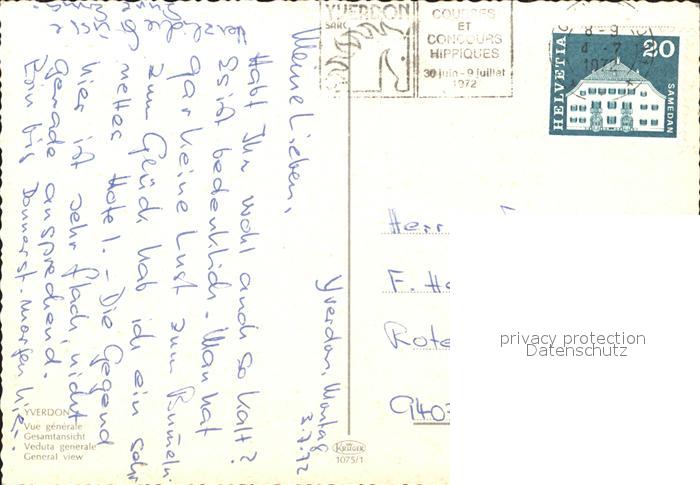 YVERDON
COURSES
ET
CONCOURS
HIPPIQUES
30 juin - 9 juillet
1972
8-9
1972
HELVETIA
20
SAMEDAN
Yverdon, Montag
3.7.72
Meine Lieben,
Habt Ihr wohl auch so kalt?
Es ist bedenklich. Man hat
gar keine Lust zum Bummeln.
Zum Glück hab ich ein sehr
nettes Hotel. - Die Gegend
hier ist sehr flach, nicht
gerade ansprechend.
Bin bis Donnerst. morgen hier.
Herr
F. H
Rote
940
privacy protection
Datenschutz
YVERDON
Vue générale
Gesamtansicht
Veduta generale
General view
KRÜGER
1075/1